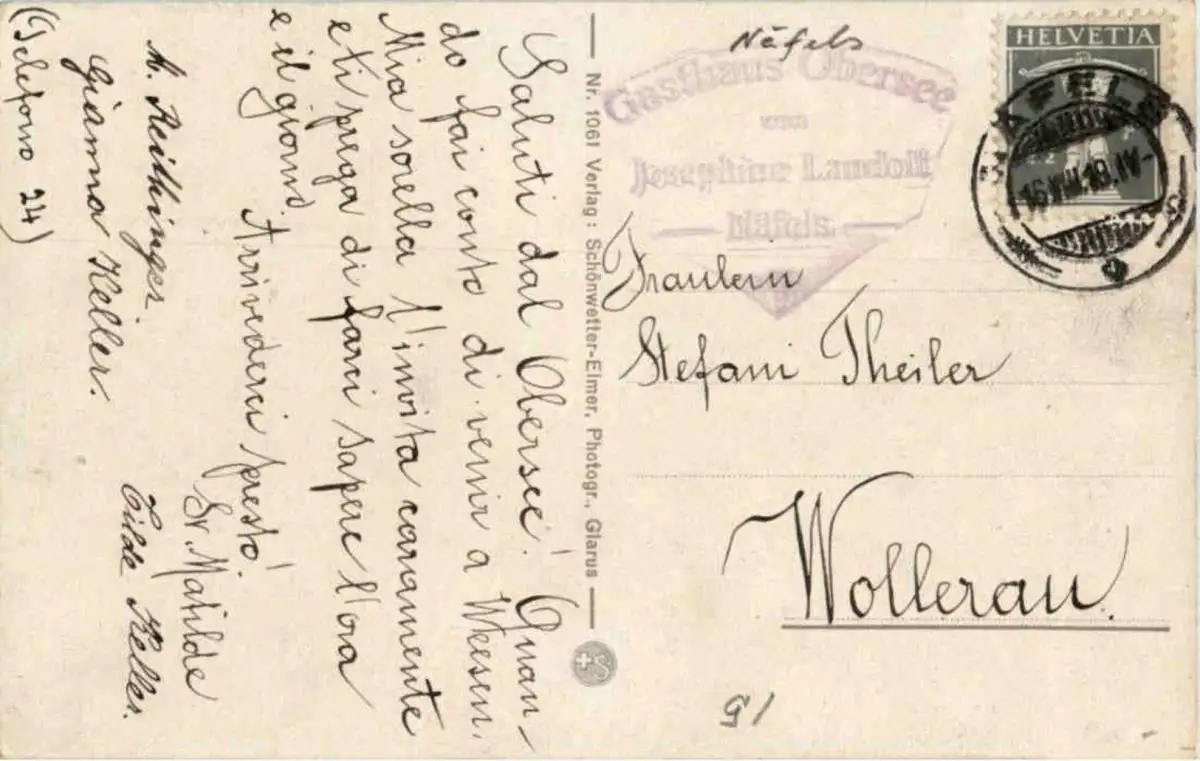 Saluti dal Obersee! Quan-
do fai conto di venir a Weesen.
Mia sorella l'invita caramente
e ti prega di farci sapere l'ora
e il giorno. Arrivederci presto!
Sr. Matilde
M. Reithinger. Tilde Keller.
Gianna Keller.
(Telefono 24)
Nr. 1061 Verlag: Schönwetter-Elmer, Photogr., Glarus
Näfels
Gasthaus Obersee
von
Josephine Landolt
Näfels
HELVETIA
NÄFELS
Fraulein
Stefani Theiler
Wollerau.
15